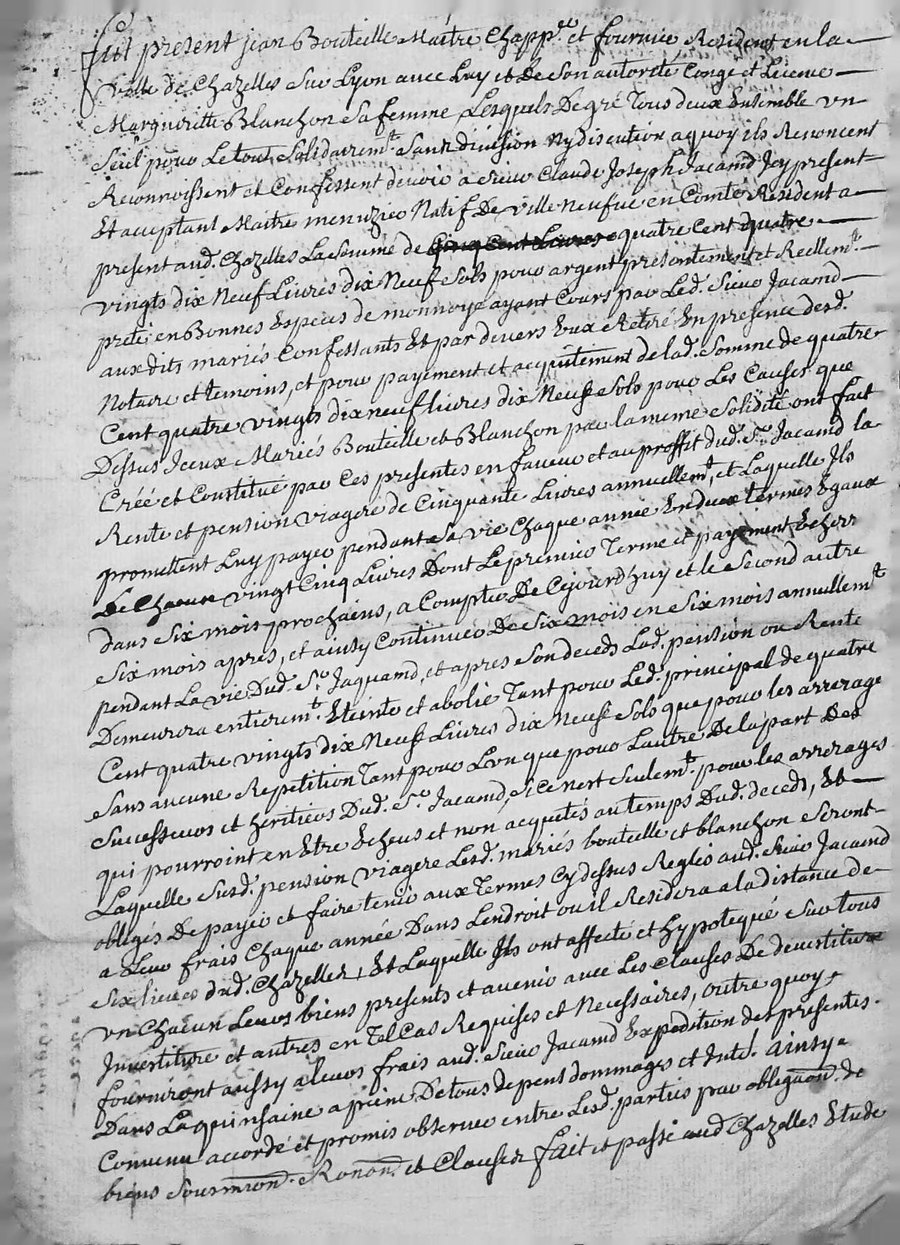 fut present jean Bouteille Maitre Chapp.er et fournier Resident en la
Ville de Chazelles Sur Lyon avec Luy et de Son autorité Congé et Licence
Margueritte Blanchon Sa femme Lesquels De gré Tous deux Ensemble un
Seul pour Le tout Solidairem.t Sans division ny discution a quoy ils Renoncent
Reconnoissent et Confessent devoir a Claude Joseph Jacamd Jcy present
Et acceptant Maitre menuzier Natif De Ville Neufve en Comté Resident a
present aud. Chazelles La Somme de quatre Cent quatre
vingts dix Neuf Livres dix Neuf Sols pour argent presentement et Reellem.t
preté en Bonnes Especes de monnoye ayant Cours par Led. Sieur Jacamd
aux dits mariés Confessants Et par devers Eux Retiré En presence desd.
Notaire et temoins, et pour payement et acquitement de lad. Somme de quatre
Cent quatre vingts dix neuf livres dix Neuf Sols pour Les Causes que
Dessus Jceux Mariés Bouteille et Blanchon par la meme Solidité ont fait
Créé et Constitué par Ces presentes en faveur et au proffit dud. S.r Jacamd la
Rente et pension viagere de Cinquante Livres annuellem.t, et Laquelle Ils
promettent Luy payer pendant Sa vie Chaque année En deux termes Egaux
De Chacun vingt Cinq Livres Dont Le premier Terme et payement Echerr
dans Six mois prochains, a Compter De Cejourd'huy et le Second autre
Six mois apres, et ainsy Continuer De Six mois en Six mois annullem.t
pendant La vie Dud. S.r Jaquamd, et apres Son deceds Lad. pension ou Rente
Demeurera entierem.t Eteinte et abolie Tant pour Led. principal de quatre
Cent quatre vingts dix Neuf Livres dix Neuf Sols que pour les arrerage
Sans aucune Repetition Tant pour L'un que pour Lautre De la part Des
Successeurs et heritiers Dud. S.r Jacamd, Si ce n'est Seulem.t pour les arrerages
qui pourroint en Etre Echeus et non acquetés au temps Dud. deceds, Et
Laquelle Susd. pension viagere Lesd. mariés bouteille et blanchon Seront
obligés De payer et faire tenir aux Termes Cy dessus Reglés aud. Sieur Jacamd
a Leur frais Chaque année Dans Lendroit ou il Residera a la distance de
Six lieues dud. Chazelles, Et Laquelle Ils ont affecté et hypotequé Sur tous
un Chacun Leurs biens presents et avenir avec Les Clauses De devestiture
Investiture et autres en Tel Cas Requises et Necessaires, outre quoy
fourniront aussy a leurs frais aud. Sieur Jacamd Expedition des presentes
Dans La quinsaine a peine De tous depens dommages et Int.ts. ainsy
Convenu accordé et promis observer entre Lesd. parties par obliga͠on. de
biens Soumi͠on. Renon. et Clauses fait et passé aud Chazelles Etude